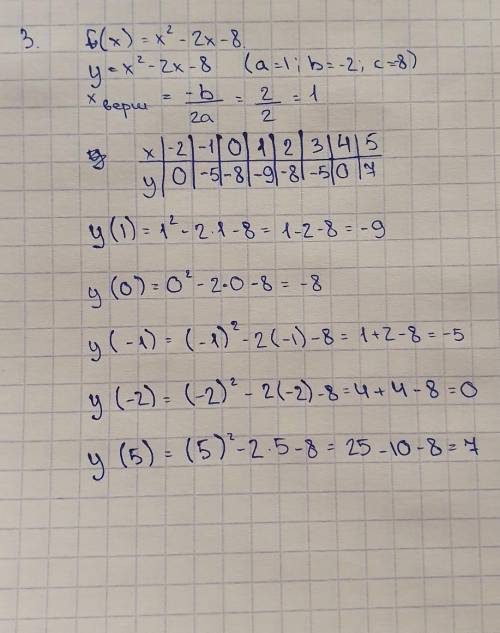 3. f(x) = x² - 2x - 8.
y = x² - 2x - 8 (a=1; b=-2; c=8)
x верш = -b/2a = 2/2 = 1
x | -2 | -1 | 0 | 1 | 2 | 3 | 4 | 5
y | 0 | -5 | -8 | -9 | -8 | -5 | 0 | 7
y(1) = 1² - 2·1 - 8 = 1 - 2 - 8 = -9
y(0) = 0² - 2·0 - 8 = -8
y(-1) = (-1)² - 2(-1) - 8 = 1 + 2 - 8 = -5
y(-2) = (-2)² - 2(-2) - 8 = 4 + 4 - 8 = 0
y(5) = (5)² - 2·5 - 8 = 25 - 10 - 8 = 7